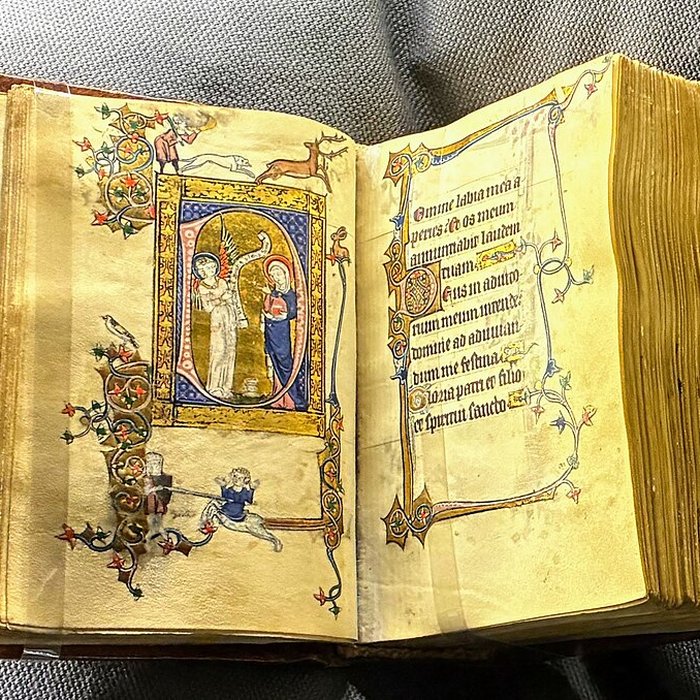 Omine labia mea a
peries: Et os meum
annuntiabit laudem
tuam.
Deus in adiuto
rium meum intende
domine ad adiuuan
dum me festina
Gloria patri et filio
et spiritui sancto